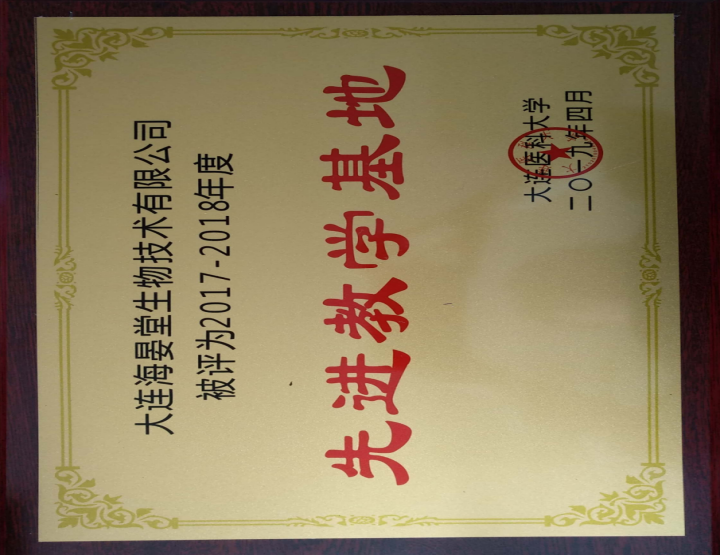 大连海晏堂生物技术有限公司
被评为2017-2018年度
先进教学基地
大连医科大学
二〇一九年四月